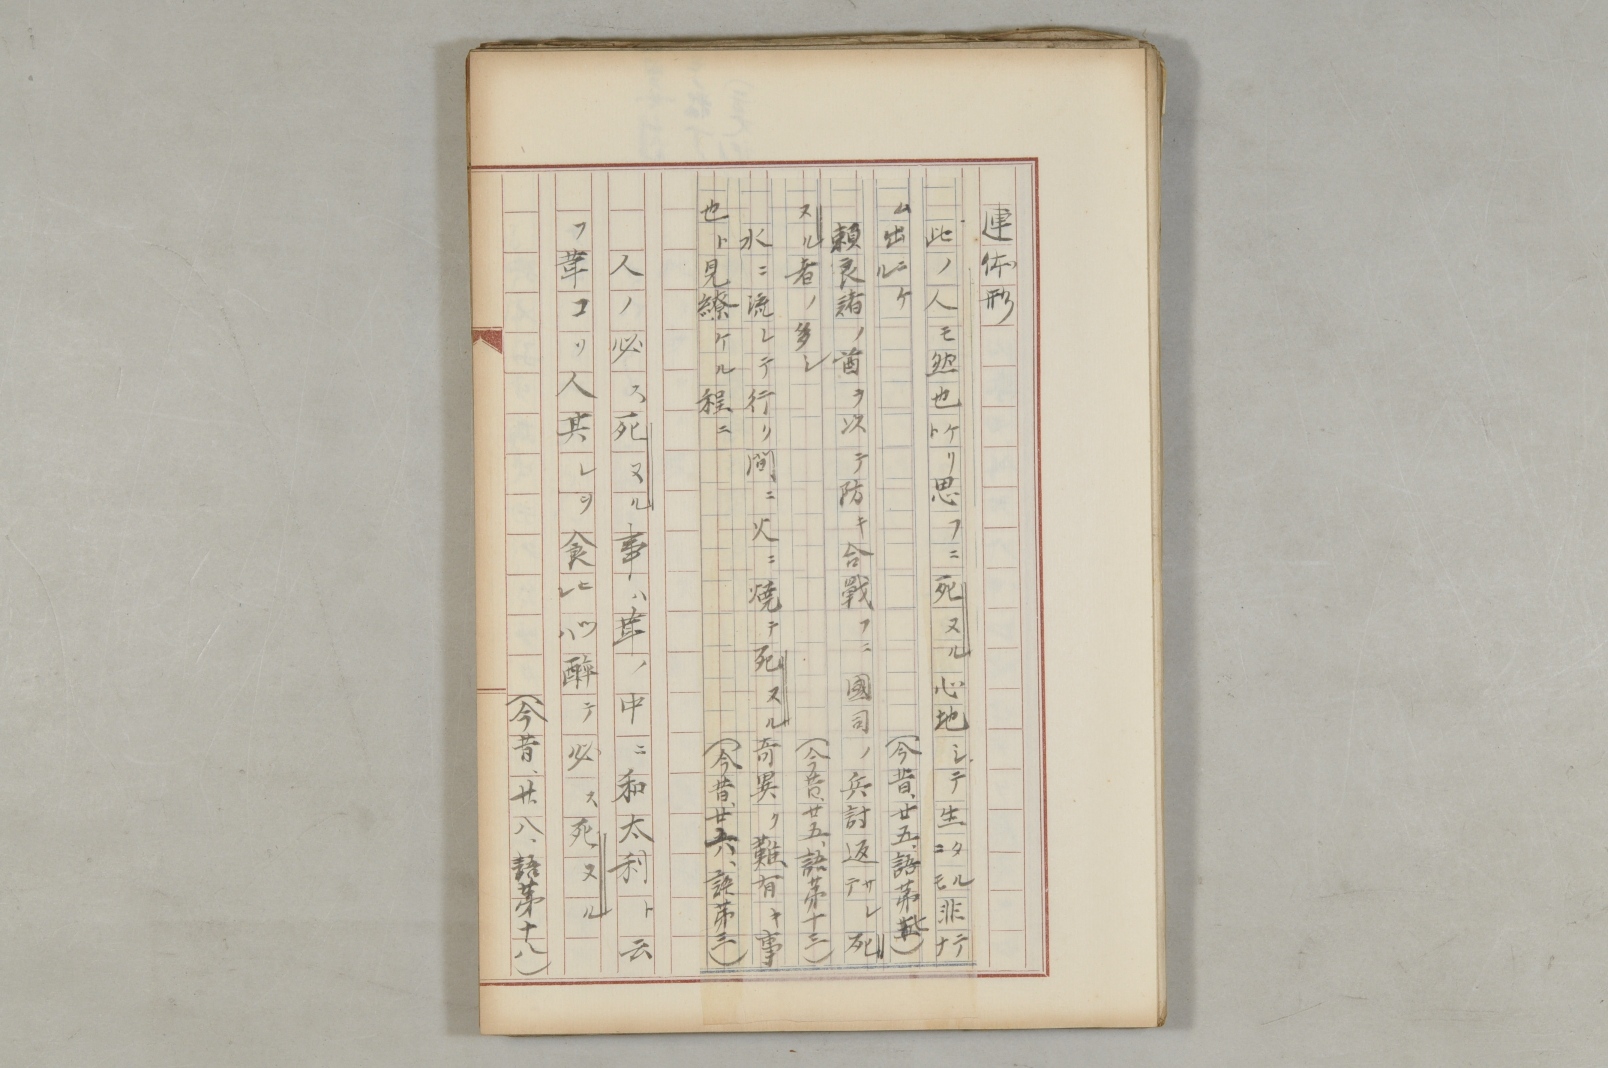 連体形
此ノ人モ然也ト聞ケリ思フニ死ヌル心地シテ生タルニモ非テナ
ム出ニケル
（今昔、廿五、語第）
頼良諸ノ首ヲ次テ防キ合戰フニ國司ノ兵討返サレテ死
スル者ノ多シ
（今昔、廿五、語第十三）
水ニ流レテ行ク間ニ火ニ焼テ死スル奇異ク難有キ事
也ト見繚ケル程ニ
（今昔、廿六、語第三）
人ノ必ス死ヌル事ハ茸ノ中ニ和太利ト云
フ茸コソ人其レヲ食ヒツレハ醉テ必ス死ヌル
（今昔、廿八、語第十八）